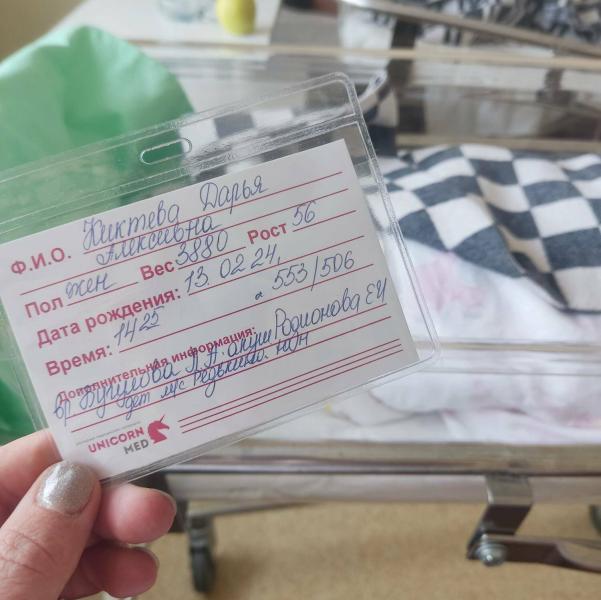 Ф.И.О. Никтева Дарья
Алексеевна
Пол жен Вес 3880 Рост 56
Дата рождения: 13.02.24,
Время: 1425 553/506
Дополнительная информация:
вр акуш Родионова ЕЧ
дет м/с Редькина
UNICORN
MED